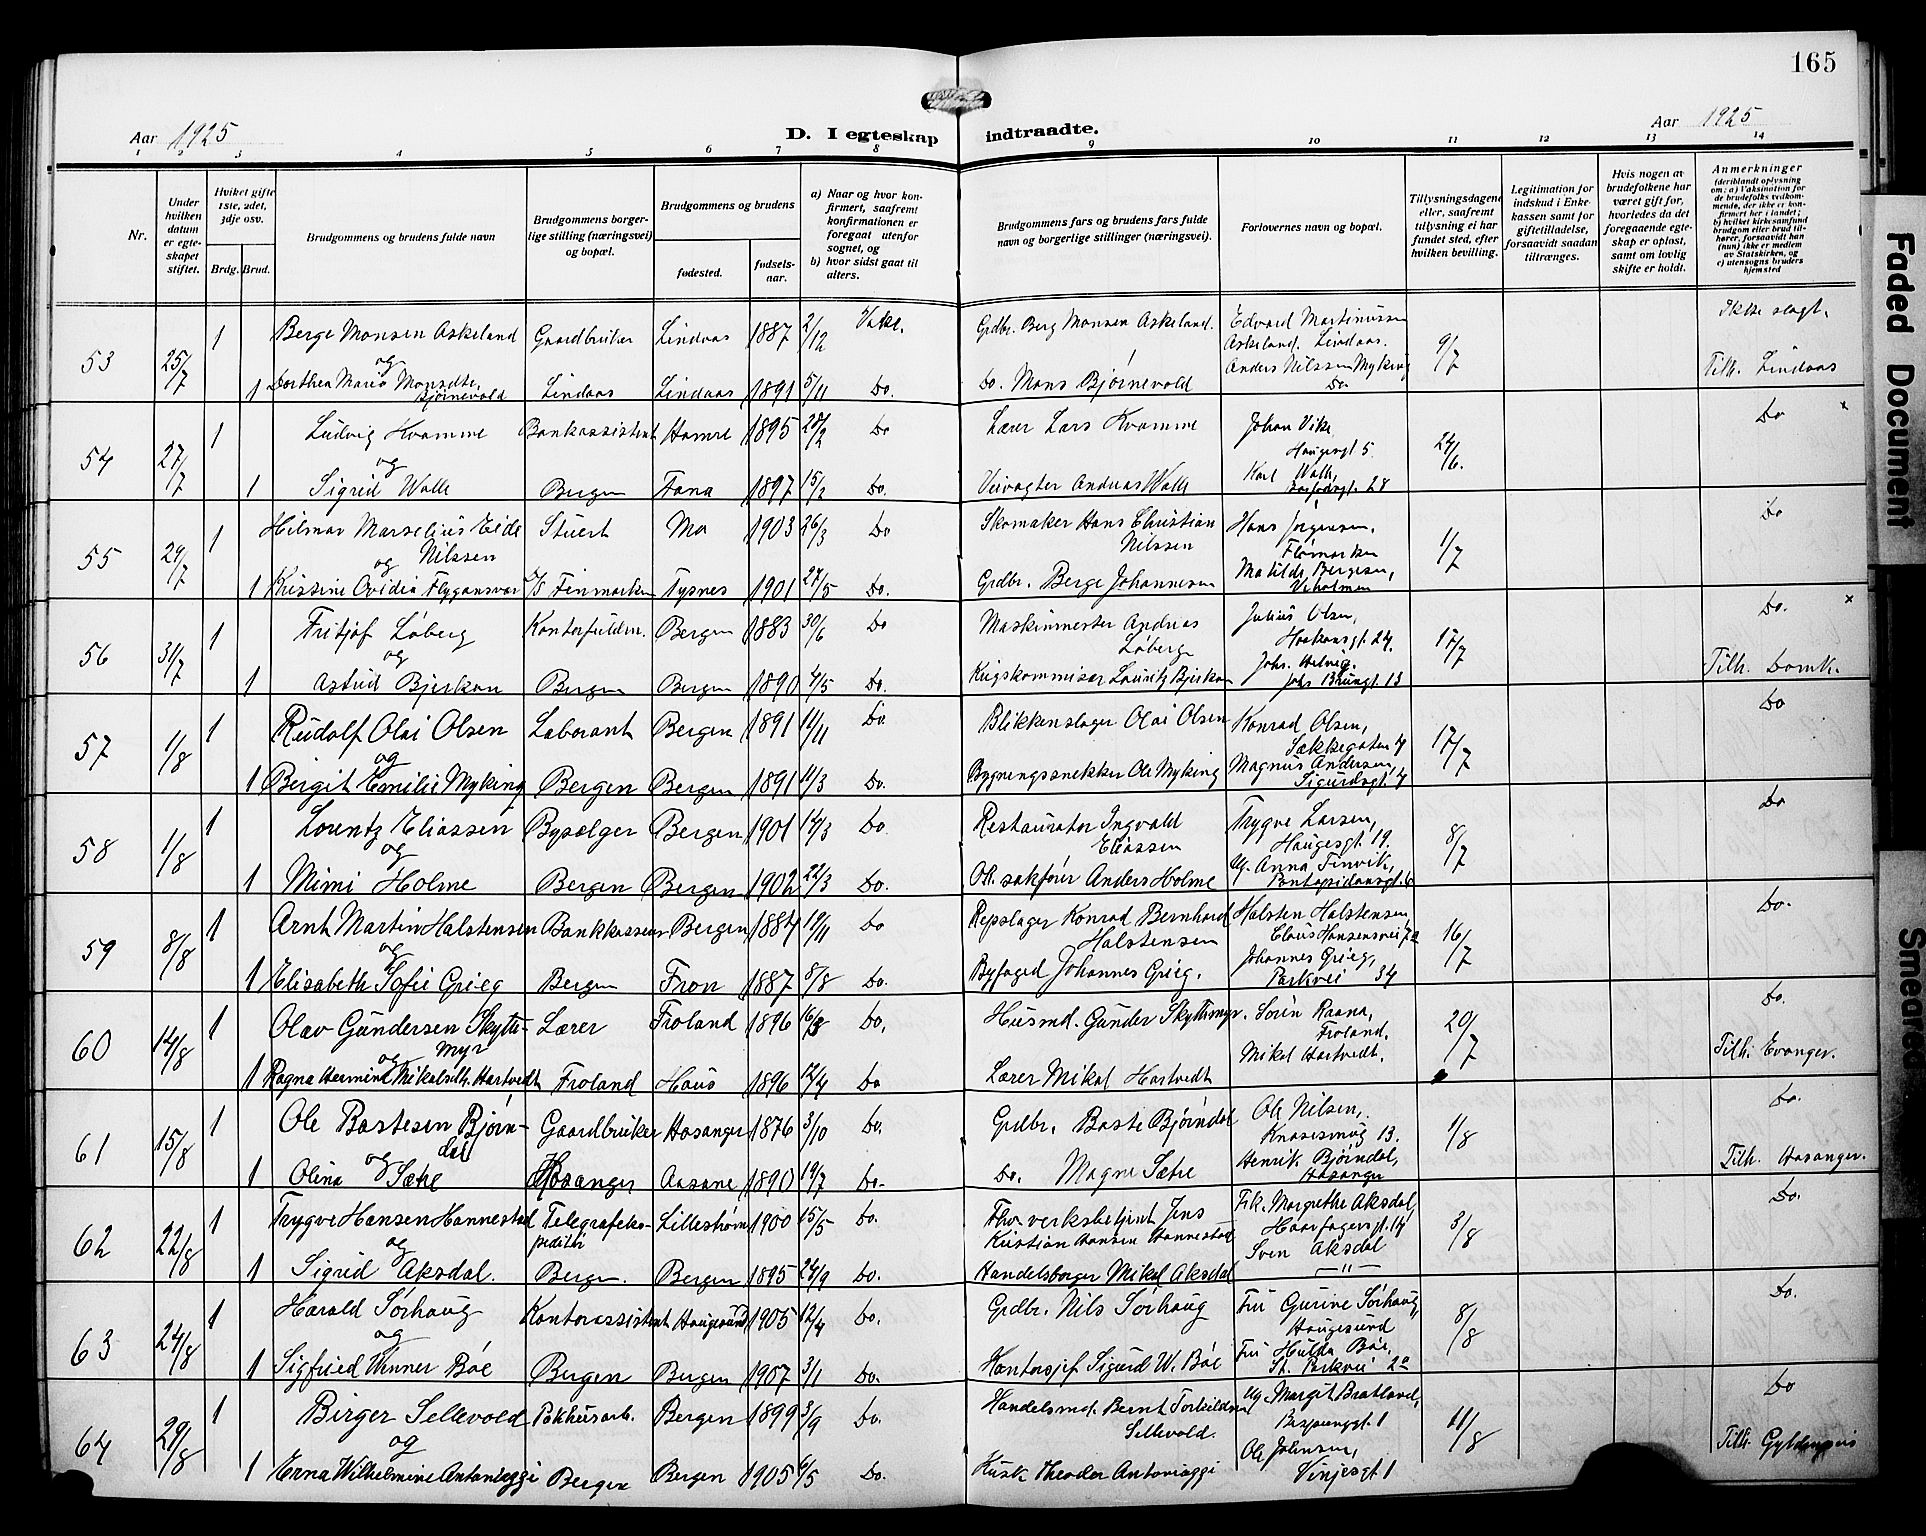 165
Aar 1925
D. I egteskap indtraadte.
Aar 1925
1 2 3 4 5 6 7 8 9 10 11 12 13 14
Nr.
Under hvilken datum er egteskapet stiftet.
Hvilket gifte 1ste, 2det, 3dje osv.
Brdg. Brud.
Brudgommens og brudens fulde navn
Brudgommens borgerlige stilling (næringsvei) og bopæl.
Brudgommens og brudens
fødested.
fødselsaar.
a) Naar og hvor konfirmert, saafremt konfirmationen er foregaat utenfor sognet, og
b) hvor sidst gaat til alters.
Brudgommens fars og brudens fars fulde navn og borgerlige stillinger (næringsvei).
Forlovernes navn og bopæl.
Tillysningsdagene eller, saafremt tillysning ei har fundet sted, efter hvilken bevilling.
Legitimation for indskud i Enkekassen samt for giftetilladelse, forsaavidt saadan tiltrænges.
Hvis nogen av brudefolkene har været gift før, hvorledes da det foregaaende egteskap er opløst, samt om lovlig skifte er holdt.
Anmerkninger (deriblandt oplysning om: a) Vaksination for de brudefolks vedkommende, der ikke er konfirmert her i landet; b) hvilket kirkesamfund brudgom eller brud tilhører, forsaavidt han (hun) ikke er medlem av Statskirken, og c) utensogns bruders hjemsted
53 25/7 1 Berge Monsen Askeland Gaardbruker Lindaas 1887 2/12 Grdbr. Berg Monsen Askeland. Edvard Martinussen Askeland. Lindaas. 9/7 Ikke slegt.
og
1 Dorthea Maria Monsdtr. Bjørnevold Lindaas Lindaas 1891 5/11 Do. Do. Mons Bjørnevold Anders Nilssen Myking Do Tilh. Lindaas
54 27/7 1 Ludvig Kvamme Bankassistent Hamre 1895 Do Lærer Lars Kvamme Johan Vike Haugesgt 5. 24/6. Do
og
1 Sigrid Walle Bergen Fana 1897 15/2 Do. Veivogter Andreas Walle Karl Walle,
55 29/7 1 Hilmar Marselius Eide Nilssen Stuert Mo 1903 26/3 Do Skomaker Hans Christian Nilssen Hans Jørgensen, 1/7 Do
og
1 Kristine Ovidia Flygansvær D/S Finmarken Tysnes 1901 27/5 Do. Grdbr. Berge Johannesen Matilde Bergesen,
56 31/7 1 Fritjof Løberg Kontorfuldm. Bergen 1883 30/6 Do Maskinmester Andreas Løberg Julius Olsen, Haakonsgt. 24. 17/7 Do.
og
1 Astrid Bjerkan Bergen Bergen 1890 4/5 Do. Krigskommisær Lauritz Bjerkan Johs. Helvig. Johs Brunsgt. 13 Tilh. Domk.
57 1/8 1 Rudolf Olai Olsen Laborant Bergen 1891 11/11 Do. Blikkenslager Olai Olsen Konrad Olsen, Sækkegaten 4 17/7 Do
og
1 Birgit Emilie Myking Bergen Bergen 1891 11/3 Do. Bygningssnekker Ole Myking Magnus Andersen, Sigurdsgt. 4
58 1/8 1 Lorentz Eliassen Bysælger Bergen 1901 14/3 Do. Restauratør Ingvald Eliassen Trygve Larsen, Haugesgt. 19. 8/7 Do
og
1 Mimi Holme Bergen Bergen 1902 22/3 Do. O.r. sakfører Anders Holme Anna Finvik, Pontopidansgt. 6
59 8/8 1 Arnt Martin Halstensen Bankkasserer Bergen 1884 19/11 Do Repslager Konrad Bernhard Halstensen Halsten Halstensen, Claus Hansensvei 7a 16/7 Do.
og
1 Elisabeth Sofie Grieg Bergen Fron 1887 8/8 Do. Byfoged Johannes Grieg. Johannes Grieg, Parkvei 34
60 14/8 1 Olav Gundersen Skyttemyr Lærer Froland 1896 16/8 Do. Husmd. Gunder Skyttmyr. Søren Raana, Froland. 20/7 Do.
og
1 Ragna Hermine Mikalsdtr. Hartvedt Froland Haus 1896 12/4 Do Lærer Mikal Hartvedt Mikal Hartvedt. Tilh. Evanger.
61 15/8 1 Ole Bastesen Bjørndal Gaardbruker Hosanger 1876 3/10 Do. Grdbr. Baste Bjørndal Ole Nilsen, 13. 1/8 Do.
og
1 Olina Sætre Hosanger Aasane 1890 19/7 Do. Do. Magne Sætre Henrik Bjørndal, Hosanger Tilh. Hosanger.
62 22/8 1 Trygve Hansen Hannestad Telegrafekspeditør 1900 15/5 Do. Jens Kristian Hansen Hannestad Frk. Margrethe Aksdal, Haarfagersgt. 14 3/8 Do.
og
1 Sigrid Aksdal. Bergen. Bergen 1895 24/9 Do. Handelsborger Mikal Aksdal Sven Aksdal — " —
63 24/8 1 Harald Sørhaug Kontorassistent Haugesund 1905 12/4 Do. Grdbr. Nils Sørhaug Fru Gurine Sørhaug, Haugesund 8/8 Do.
og
1 Sigfried Winner Bøe Bergen Bergen 1907 3/1 Do. Kontorsjef Sigurd W. Bøe Fru Hulda Bøe, St. Parkvei 2a
64 29/8 1 Birger Sellevold Pakhusarb. Bergen 1899 3/9 Do. Handelsmd. Bernt Torkildsen Sellevold. Margit Bratland, Bispenggt. 1 11/8 Do
og
1 Erna Wilhelmine Antoniaggi Bergen Bergen 1905 6/5 Do. Kusk Theodor Antoniaggi Ole Johnsen, Vinjesgt. 1
Faded Document
Smeared